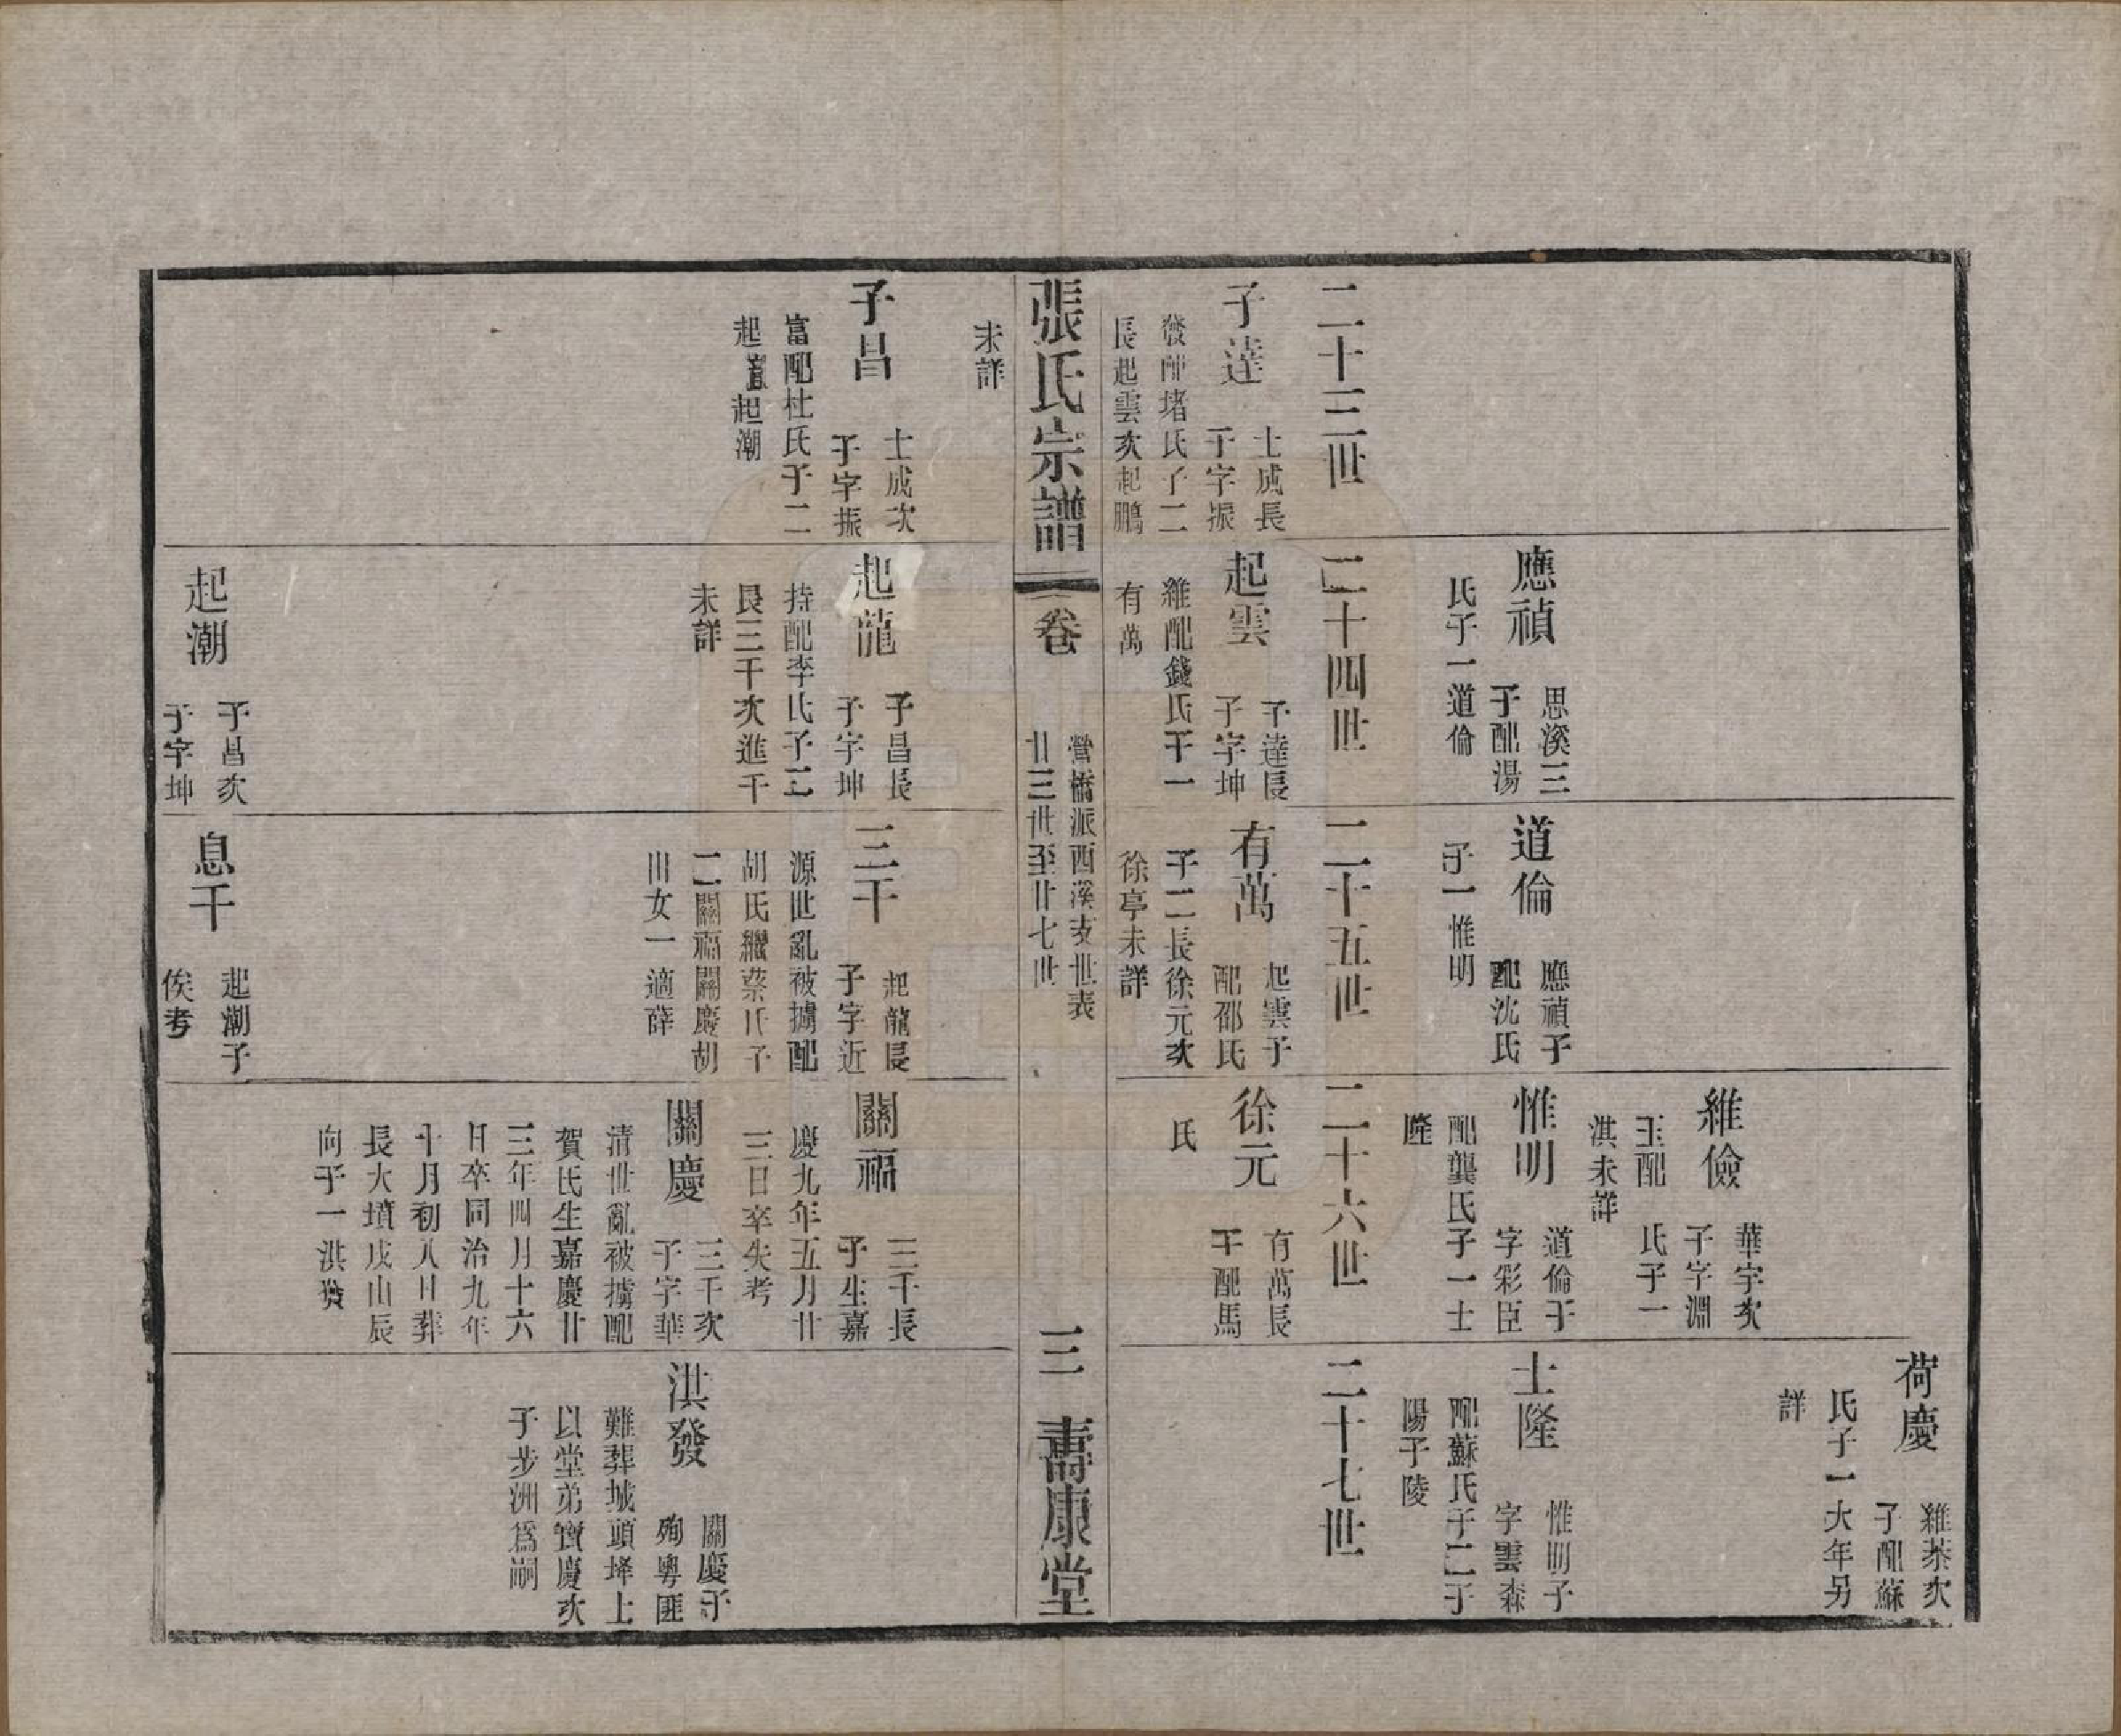 荷慶
維茶次
子配蘇
氏子一大年另
詳
維儉
華宇次
子字淵
玉配
氏子一
淇未詳
應禎
思溪三
子配湯
氏子一道倫
道倫
應禎子
配沈氏
子一惟明
惟明
道倫子
字彩臣
配龔氏子一士
隆
士隆
惟明子
字雲森
配蘇氏子二子
陽子陵
二十三世
二十四世
二十五世
二十六世
二十七世
子達
士成長
子字振
發配堵氏子二
長起雲次起鵬
未詳
起雲
子達長
子字坤
維配錢氏子一
有萬
有萬
起雲子
配邵氏
子二長徐元次
徐亭未詳
徐元
有萬長
子配馬
氏
張氏宗譜
卷
營橋派西溪支世表
廿三世至廿七世
三
壽康堂
子昌
士成次
子字振
富配杜氏子二
起龍起潮
起龍
子昌長
子字坤
持配李氏子二
長三千次進千
未詳
三千
起龍長
子字近
源世亂被擄配
胡氏繼蔡氏子
二關福關慶胡
出女一適薛
關福
三千長
子生嘉
慶九年五月廿
三日卒失考
關慶
三千次
子字華
清世亂被擄配
賀氏生嘉慶廿
三年四月十六
日卒同治九年
十月初八日葬
長大墳戌山辰
向子一洪發
洪發
關慶子
殉粵匪
難葬城頭垾上
以堂弟寶慶次
子步洲為嗣
起潮
子昌次
子字坤
息千
起潮子
俟考